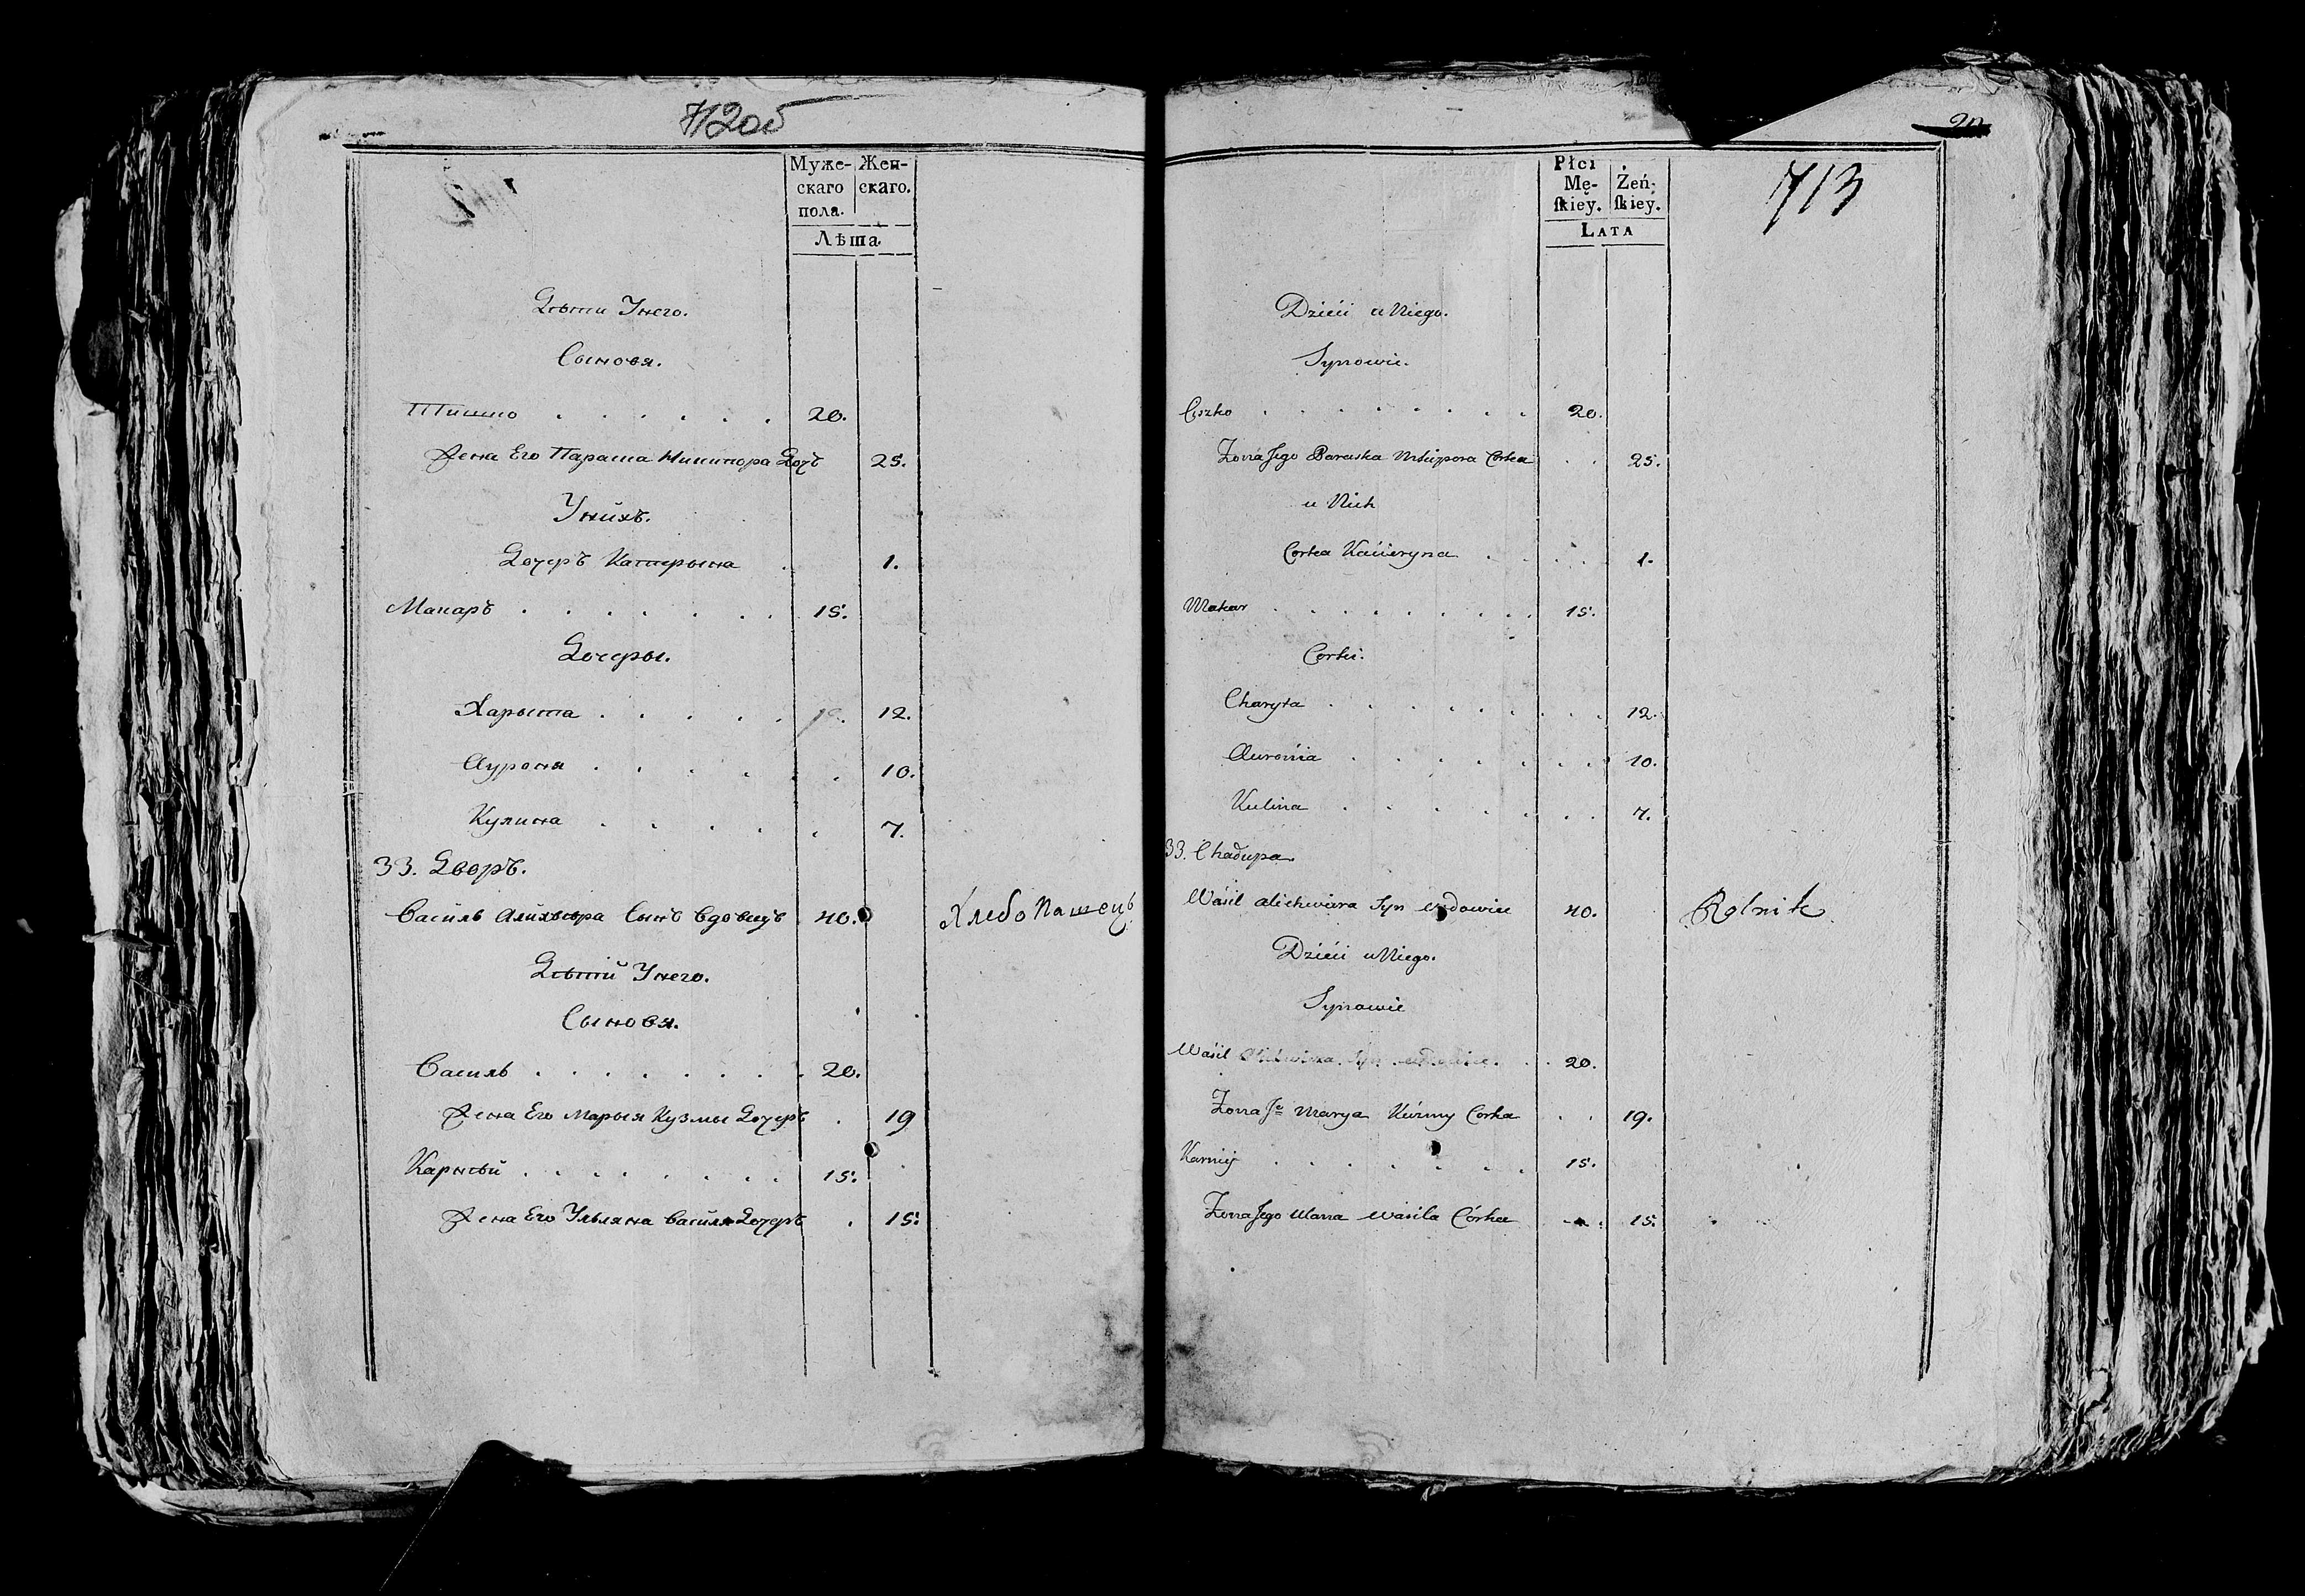 712об
Муже- Жен-
скаго скаго.
пола.
Лѣта
Дѣти Унего.
Сыновя.
Тишко . . . . . . 20.
Жена Его Параска Никипора Доч҃ъ 25.
Унйхъ.
Дочеръ Катерына . 1.
Макаръ . . . . . . . 15.
Дочеры.
Харыта . . . . . 12.
Ауроня . . . . . . 10.
Кулина . . . . . 7.
33. Дворъ.
Василь Алйхвира Сынъ Вдовецъ 40. Хлебопашецъ
Дѣтій Унего.
Сыновя.
Василь . . . . . . . . 20.
Жена Его Марыя Кузмы Дочеръ . 19
Карнѣй . . . . . . . . 15.
Жена Его Ульляна Васйля Дочеръ . 15.
713
Płci
Mę- Żeń-
ſkiey. ſkiey.
LATA
Dzieći u Niego.
Synowie.
Ciszko . . . . . . . . 20.
Zona Jego Paraska Nikipora Corka . . 25.
u Nich
Corka Kaćieryna . . . . . 1.
Makar . . . . . . . . 15.
Corki.
Charyta . . . . . . . . . 12.
Auronia . . . . . . . . 10.
Kulina . . . . . . . 7.
33. Chałupa.
Wasil Alichwira Syn wdowiec 40. Rolnik.
Dzieći u Niego.
Synowie
Wasil . . 20.
Zona Je Marya Kuźmy Corka . . 19.
Karniy . . . . . . . 15.
Zona Jego Ulana Wasila Córka . . 15.